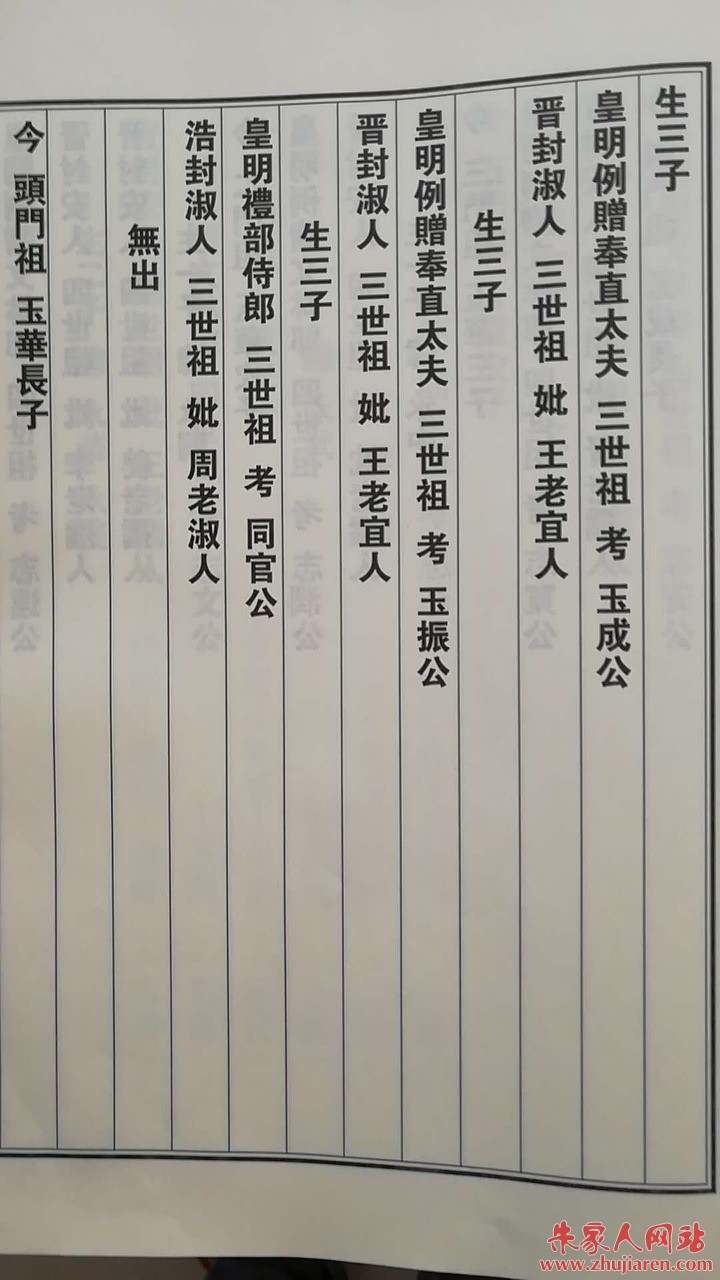 生三子
皇明例贈奉直太夫 三世祖 考 玉成公
晋封淑人 三世祖 妣 王老宜人
生三子
皇明例贈奉直太夫 三世祖 考 玉振公
晋封淑人 三世祖 妣 王老宜人
生三子
皇明禮部侍郎 三世祖 考 同官公
浩封淑人 三世祖 妣 周老淑人
無出
今 頭門祖 玉華長子
朱家人网站
www.zhujiaren.com